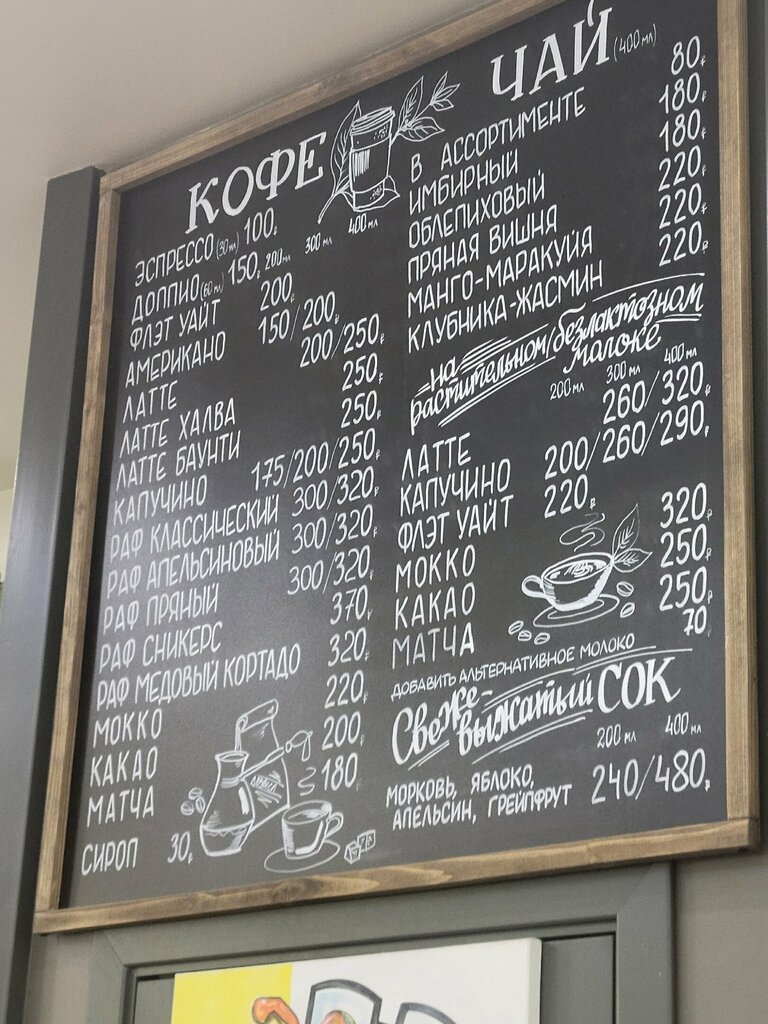 КОФЕ
ЭСПРЕССО (30 мл) 100₽
ДОППИО (60 мл) 150₽ 200 мл 300 мл 400 мл
ФЛЭТ УАЙТ 200₽
АМЕРИКАНО 150/200₽
ЛАТТЕ 200/250₽
ЛАТТЕ ХАЛВА 250₽
ЛАТТЕ БАУНТИ 250₽
КАПУЧИНО 175/200/250₽
РАФ КЛАССИЧЕСКИЙ 300/320₽
РАФ АПЕЛЬСИНОВЫЙ 300/320₽
РАФ ПРЯНЫЙ 300/320₽
РАФ СНИКЕРС 370₽
РАФ МЕДОВЫЙ КОРТАДО 320₽
МОККО 220₽
КАКАО 200₽
МАТЧА 180₽
СИРОП 30₽
ЧАЙ (400 мл)
В АССОРТИМЕНТЕ 80₽
ИМБИРНЫЙ 180₽
ОБЛЕПИХОВЫЙ 180₽
ПРЯНАЯ ВИШНЯ 220₽
МАНГО-МАРАКУЙЯ 220₽
КЛУБНИКА-ЖАСМИН 220₽
на
растительном/безлактозном
молоке
200 мл 300 мл 400 мл
ЛАТТЕ 260/320₽
КАПУЧИНО 200/260/290₽
ФЛЭТ УАЙТ 220₽
МОККО 320₽
КАКАО 250₽
МАТЧА 250₽
ДОБАВИТЬ АЛЬТЕРНАТИВНОЕ МОЛОКО 70
Свеже-
выжатый СОК
200 мл 400 мл
МОРКОВЬ, ЯБЛОКО,
АПЕЛЬСИН, ГРЕЙПФРУТ 240/480₽